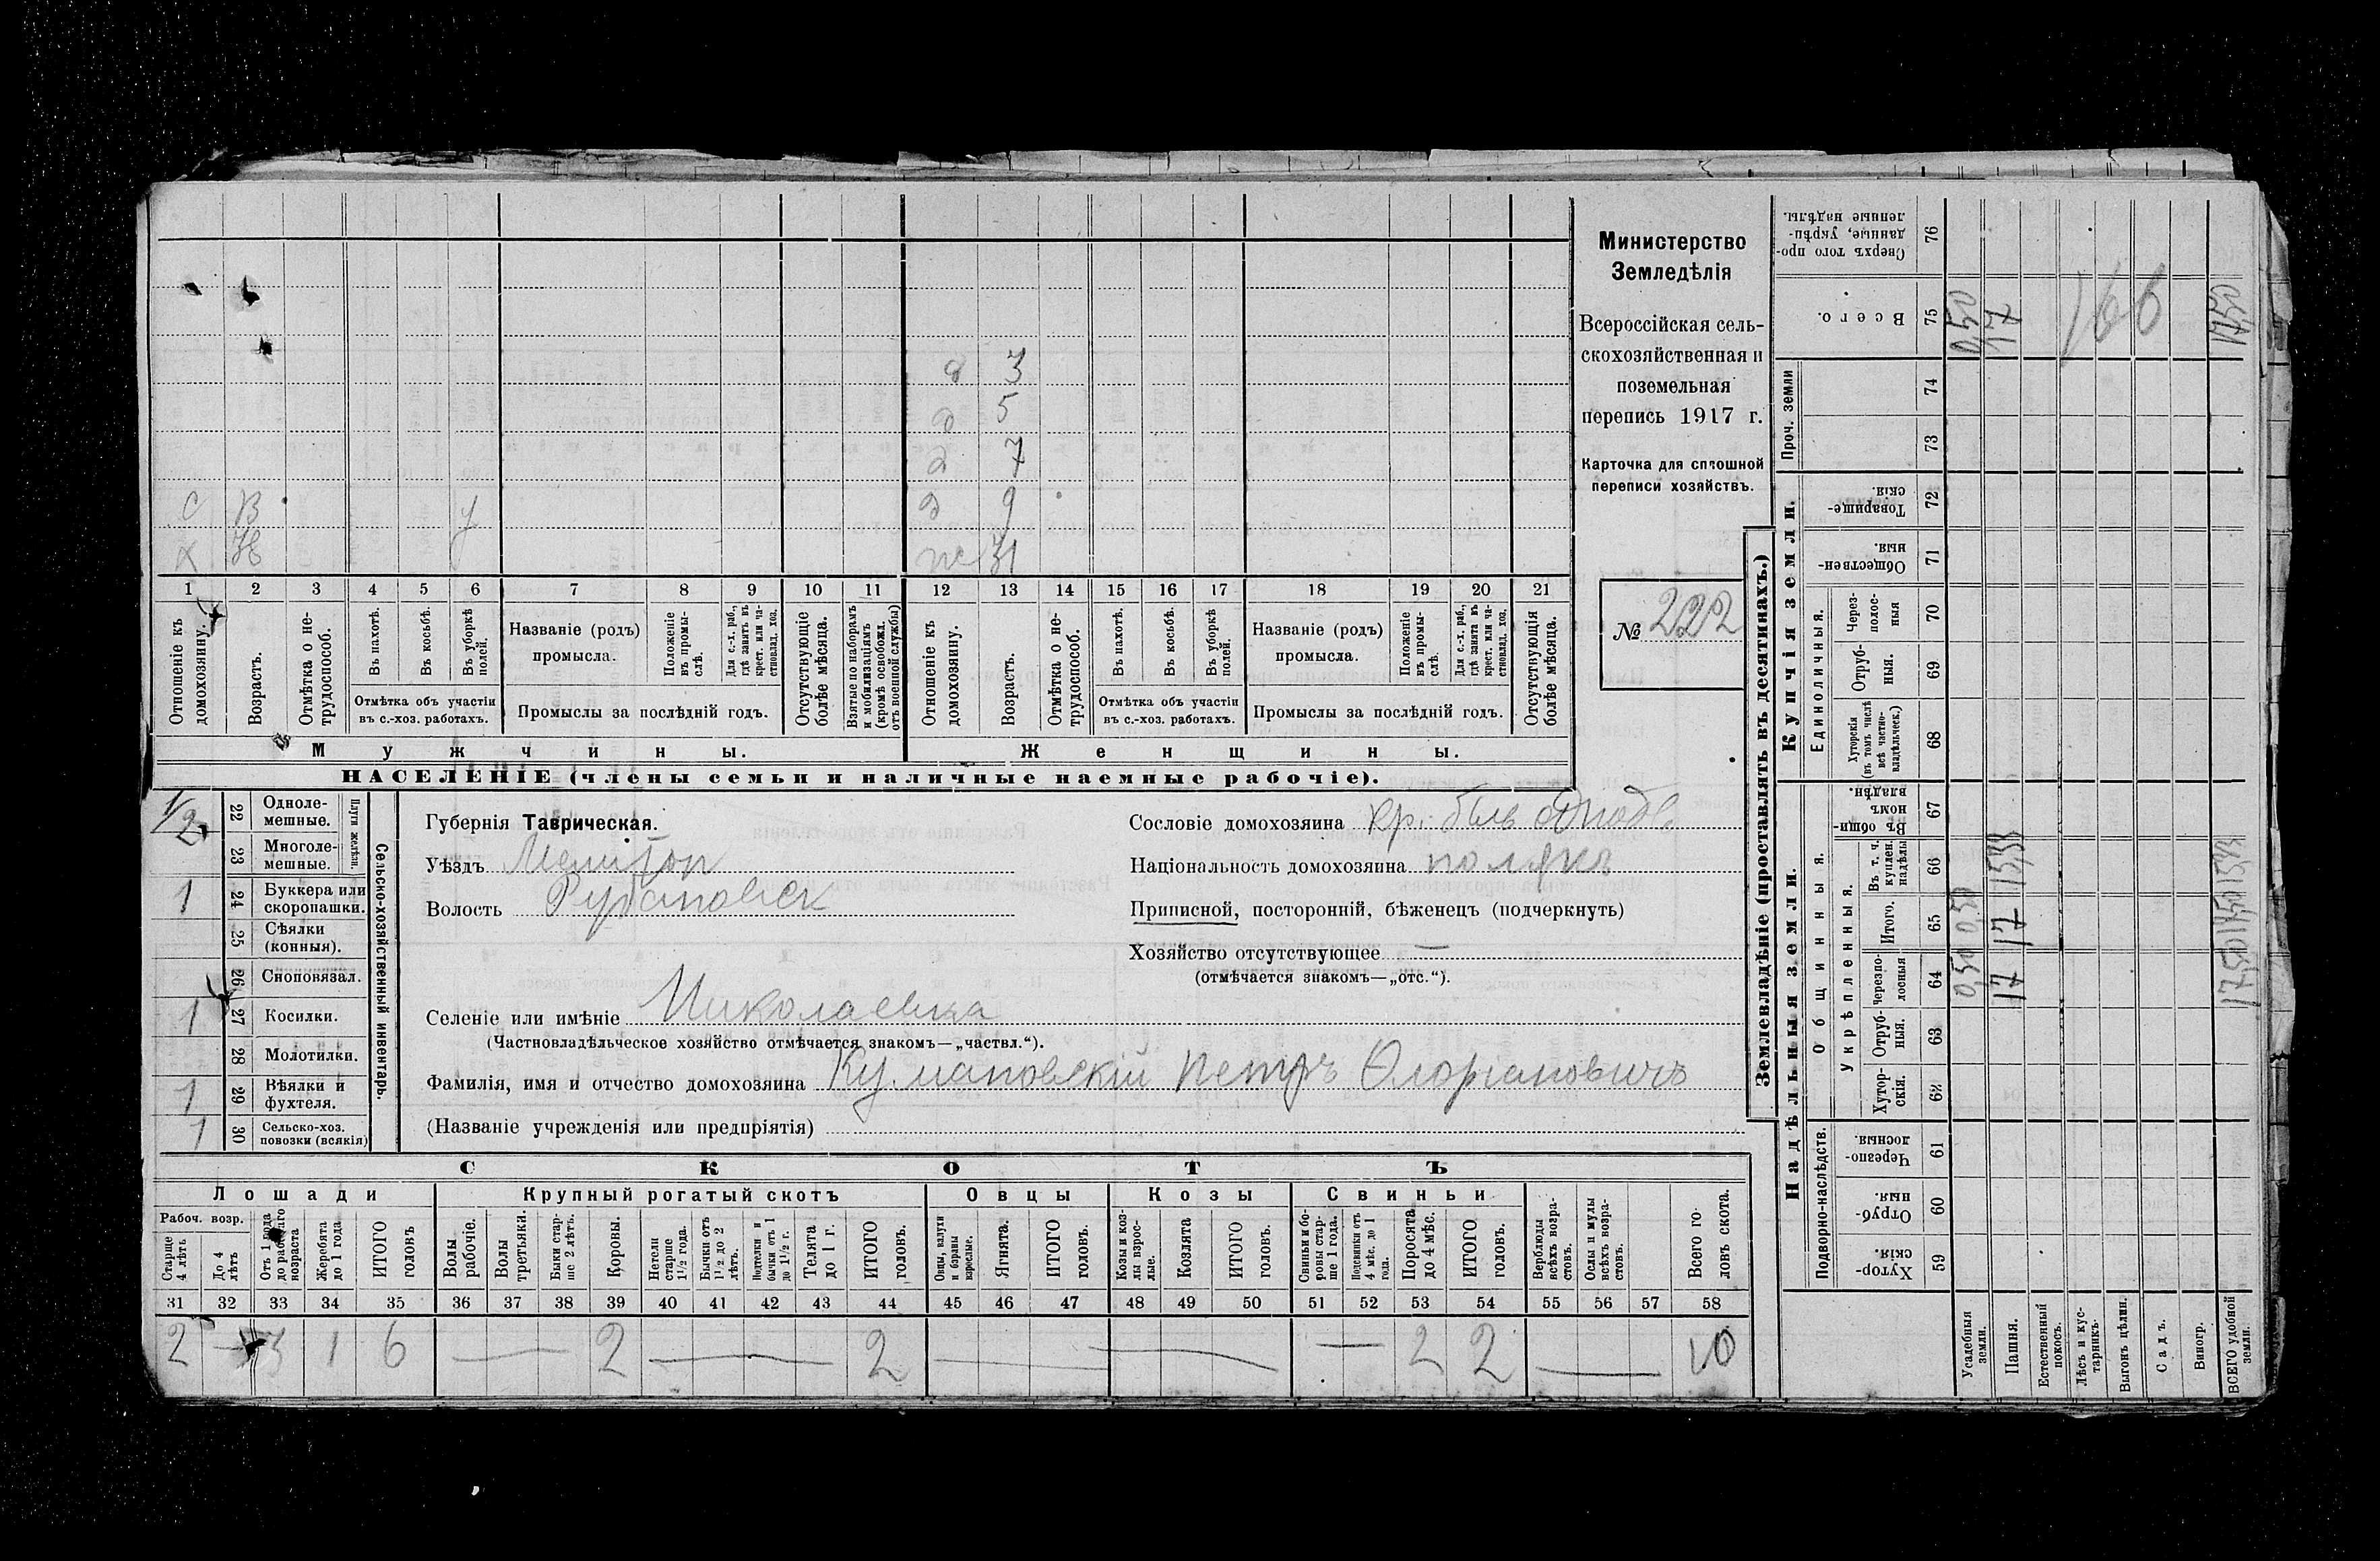 Министерство
Земледѣлія
Всероссійская сель-
скохозяйственная и
поземельная
перепись 1917 г.
Карточка для сплошной
переписи хозяйствъ.
№ 222
д 3
д 5
д 7
с д 9
ж 31
1 2 3 4 5 6 7 8 9 10 11 12 13 14 15 16 17 18 19 20 21
Отношеніе къ домохозяину.
Возрастъ.
Отмѣтка о не-трудоспособ.
Въ пахотѣ.
Въ косьбѣ.
Въ уборкѣ полей.
Отмѣтка объ участіи
въ с.-хоз. работахъ.
Названіе (родъ)
промысла.
Положеніе въ промы-слѣ.
Для с.-х. раб., гдѣ занятъ въ крест. или ча-стновлад. хоз.
Промыслы за послѣдній годъ.
Отсутствующіе болѣе мѣсяца.
Взятые по наборамъ и мобилизаціямъ (кромѣ освобожд. отъ военной службы)
Отношеніе къ домохозяину.
Возрастъ.
Отмѣтка о не-трудоспособ.
Въ пахотѣ.
Въ косьбѣ.
Въ уборкѣ полей.
Отмѣтка объ участіи
въ с.-хоз. работахъ.
Названіе (родъ)
промысла.
Положеніе въ промы-слѣ.
Для с.-х. раб., гдѣ занята въ крест. или ча-стновлад. хоз.
Промыслы за послѣдній годъ.
Отсутствующія болѣе мѣсяца.
Мужчины.
Женщины.
НАСЕЛЕНІЕ (члены семьи и наличные наемные рабочіе).
Сельско-хозяйственный инвентарь.
Плуги желѣзн.
1/2 22 Одноле-мешные.
23 Многоле-мешные.
1 24 Буккера или скоропашки.
25 Сѣялки (конныя).
26 Сноповязал.
1 27 Косилки.
28 Молотилки.
1 29 Вѣялки и фухтеля.
1 30 Сельско-хоз. повозки (всякія)
Губернія Таврическая.
Уѣздъ Мелитоп
Волость Рубановск
Сословіе домохозяина кр. бывъ
Національность домохозяина полякъ
Приписной, посторонній, бѣженецъ (подчеркнуть)
Хозяйство отсутствующее —
(отмѣчается знакомъ—„отс.“).
Селеніе или имѣніе Николаевка
(Частновладѣльческое хозяйство отмѣчается знакомъ—„частвл.“).
Фамилія, имя и отчество домохозяина Кулмановскій Петръ Ѳлоріановичъ
(Названіе учрежденія или предпріятія)
СКОТЪ
Лошади
Крупный рогатый скотъ
Овцы
Козы
Свиньи
Рабоч. возр.
Старше 4 лѣтъ
До 4 лѣтъ
Отъ 1 года до рабочаго возраста
Жеребята до 1 года
ИТОГО головъ
Волы рабочіе.
Волы третьяки.
Быки стар-ше 2 лѣтъ.
Коровы.
Нетели старше 1 1/2 года.
Бычки отъ 1 1/2 до 2 лѣтъ.
Подтелки и бычки отъ 1 до 1 1/2 г.
Телята до 1 г.
ИТОГО головъ.
Овцы, валухи и бараны взрослые.
Ягнята.
ИТОГО головъ.
Козы и коз-лы взрос-лые.
Козлята
ИТОГО головъ.
Свиньи и бо-ровы стар-ше 1 года.
Подсвинки отъ 4 мѣс. до 1 года.
Поросята до 4 мѣс.
ИТОГО головъ.
Верблюды всѣхъ возра-стовъ.
Ослы и мулы всѣхъ возра-стовъ.
Всего го-ловъ скота.
31 32 33 34 35 36 37 38 39 40 41 42 43 44 45 46 47 48 49 50 51 52 53 54 55 56 57 58
2 — 3 1 6 — 2 — 2 — — — 2 2 — 10
Землевладѣніе (проставлять въ десятинахъ.)
Купчія земли.
Надѣльныя земли.
Сверхъ того про-данные, укрѣп-ленные надѣлы. 76
Всего. 75
Проч. земли 74 73
Товарище-скія. 72
Обществен-ныя. 71
Единоличныя.
Через-полос-ныя 70
Отруб-ныя. 69
Хуторскія (въ томъ числѣ всѣ частно-владѣльческ.) 68
Общинныя.
Въ общин-номъ владѣн. 67
Укрѣпленныя.
Въ т. ч. куплен. надѣлы 66
Итого. 65
Черезпо-лосныя 64
Отруб-ныя. 63
Хутор-скія. 62
Подворно-наслѣдств.
Черезпо-лосныя 61
Отруб-ныя. 60
Хутор-скія. 59
Усадебныя земли. 0,50 0,50 0,50
Пашня. 17 17 15,38 17
Естественный покосъ.
Лѣсъ и кус-тарникъ.
Выгонъ цѣлин.
Садъ.
Виногр.
ВСЕГО удобной земли. 17,50 17,50 17,50
166